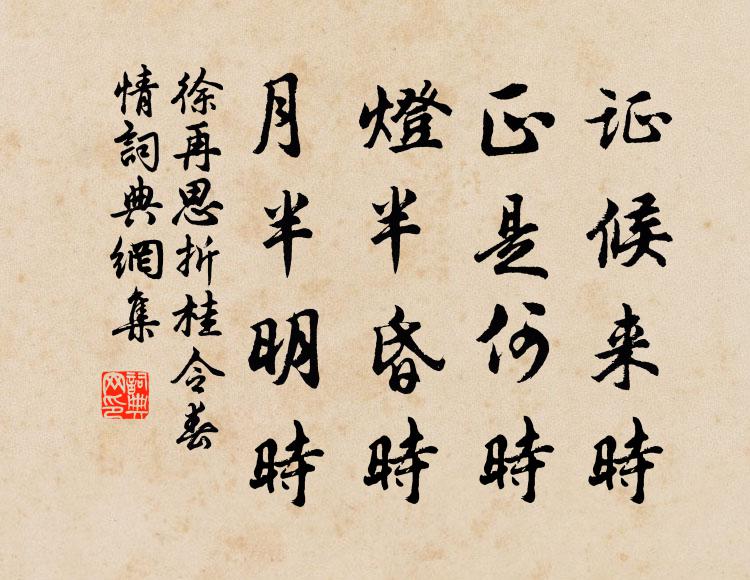 证候来時
正是何時
燈半昏時
月半明時
徐再思折桂令春
情詞典網集
詞典
网印